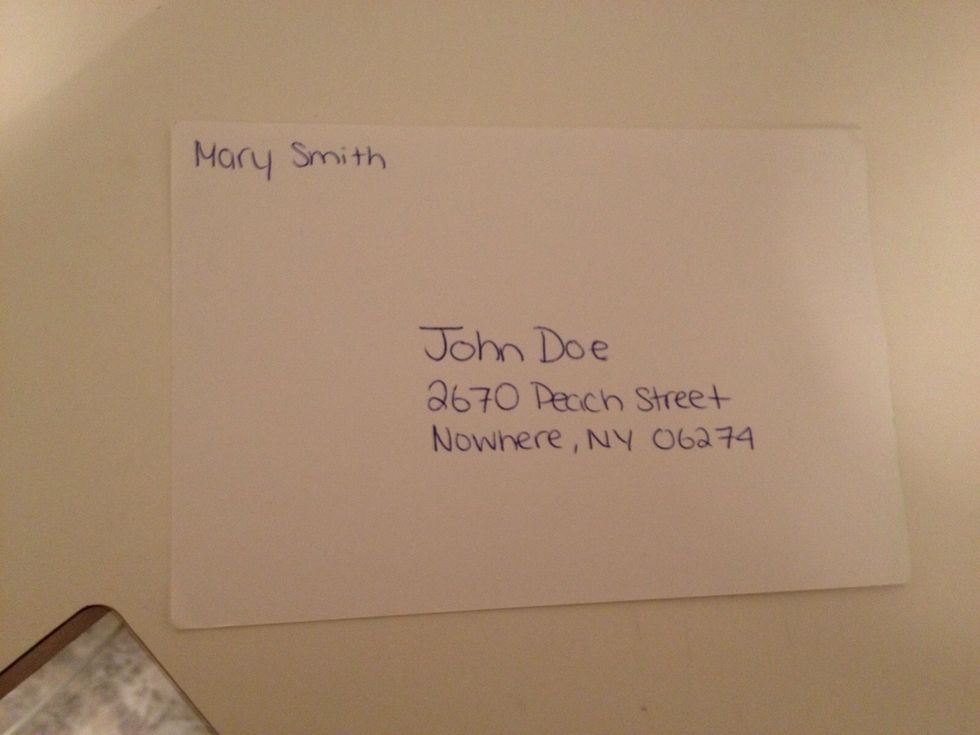 Mary Smith
John Doe
2670 Peach Street
Nowhere, NY 06274